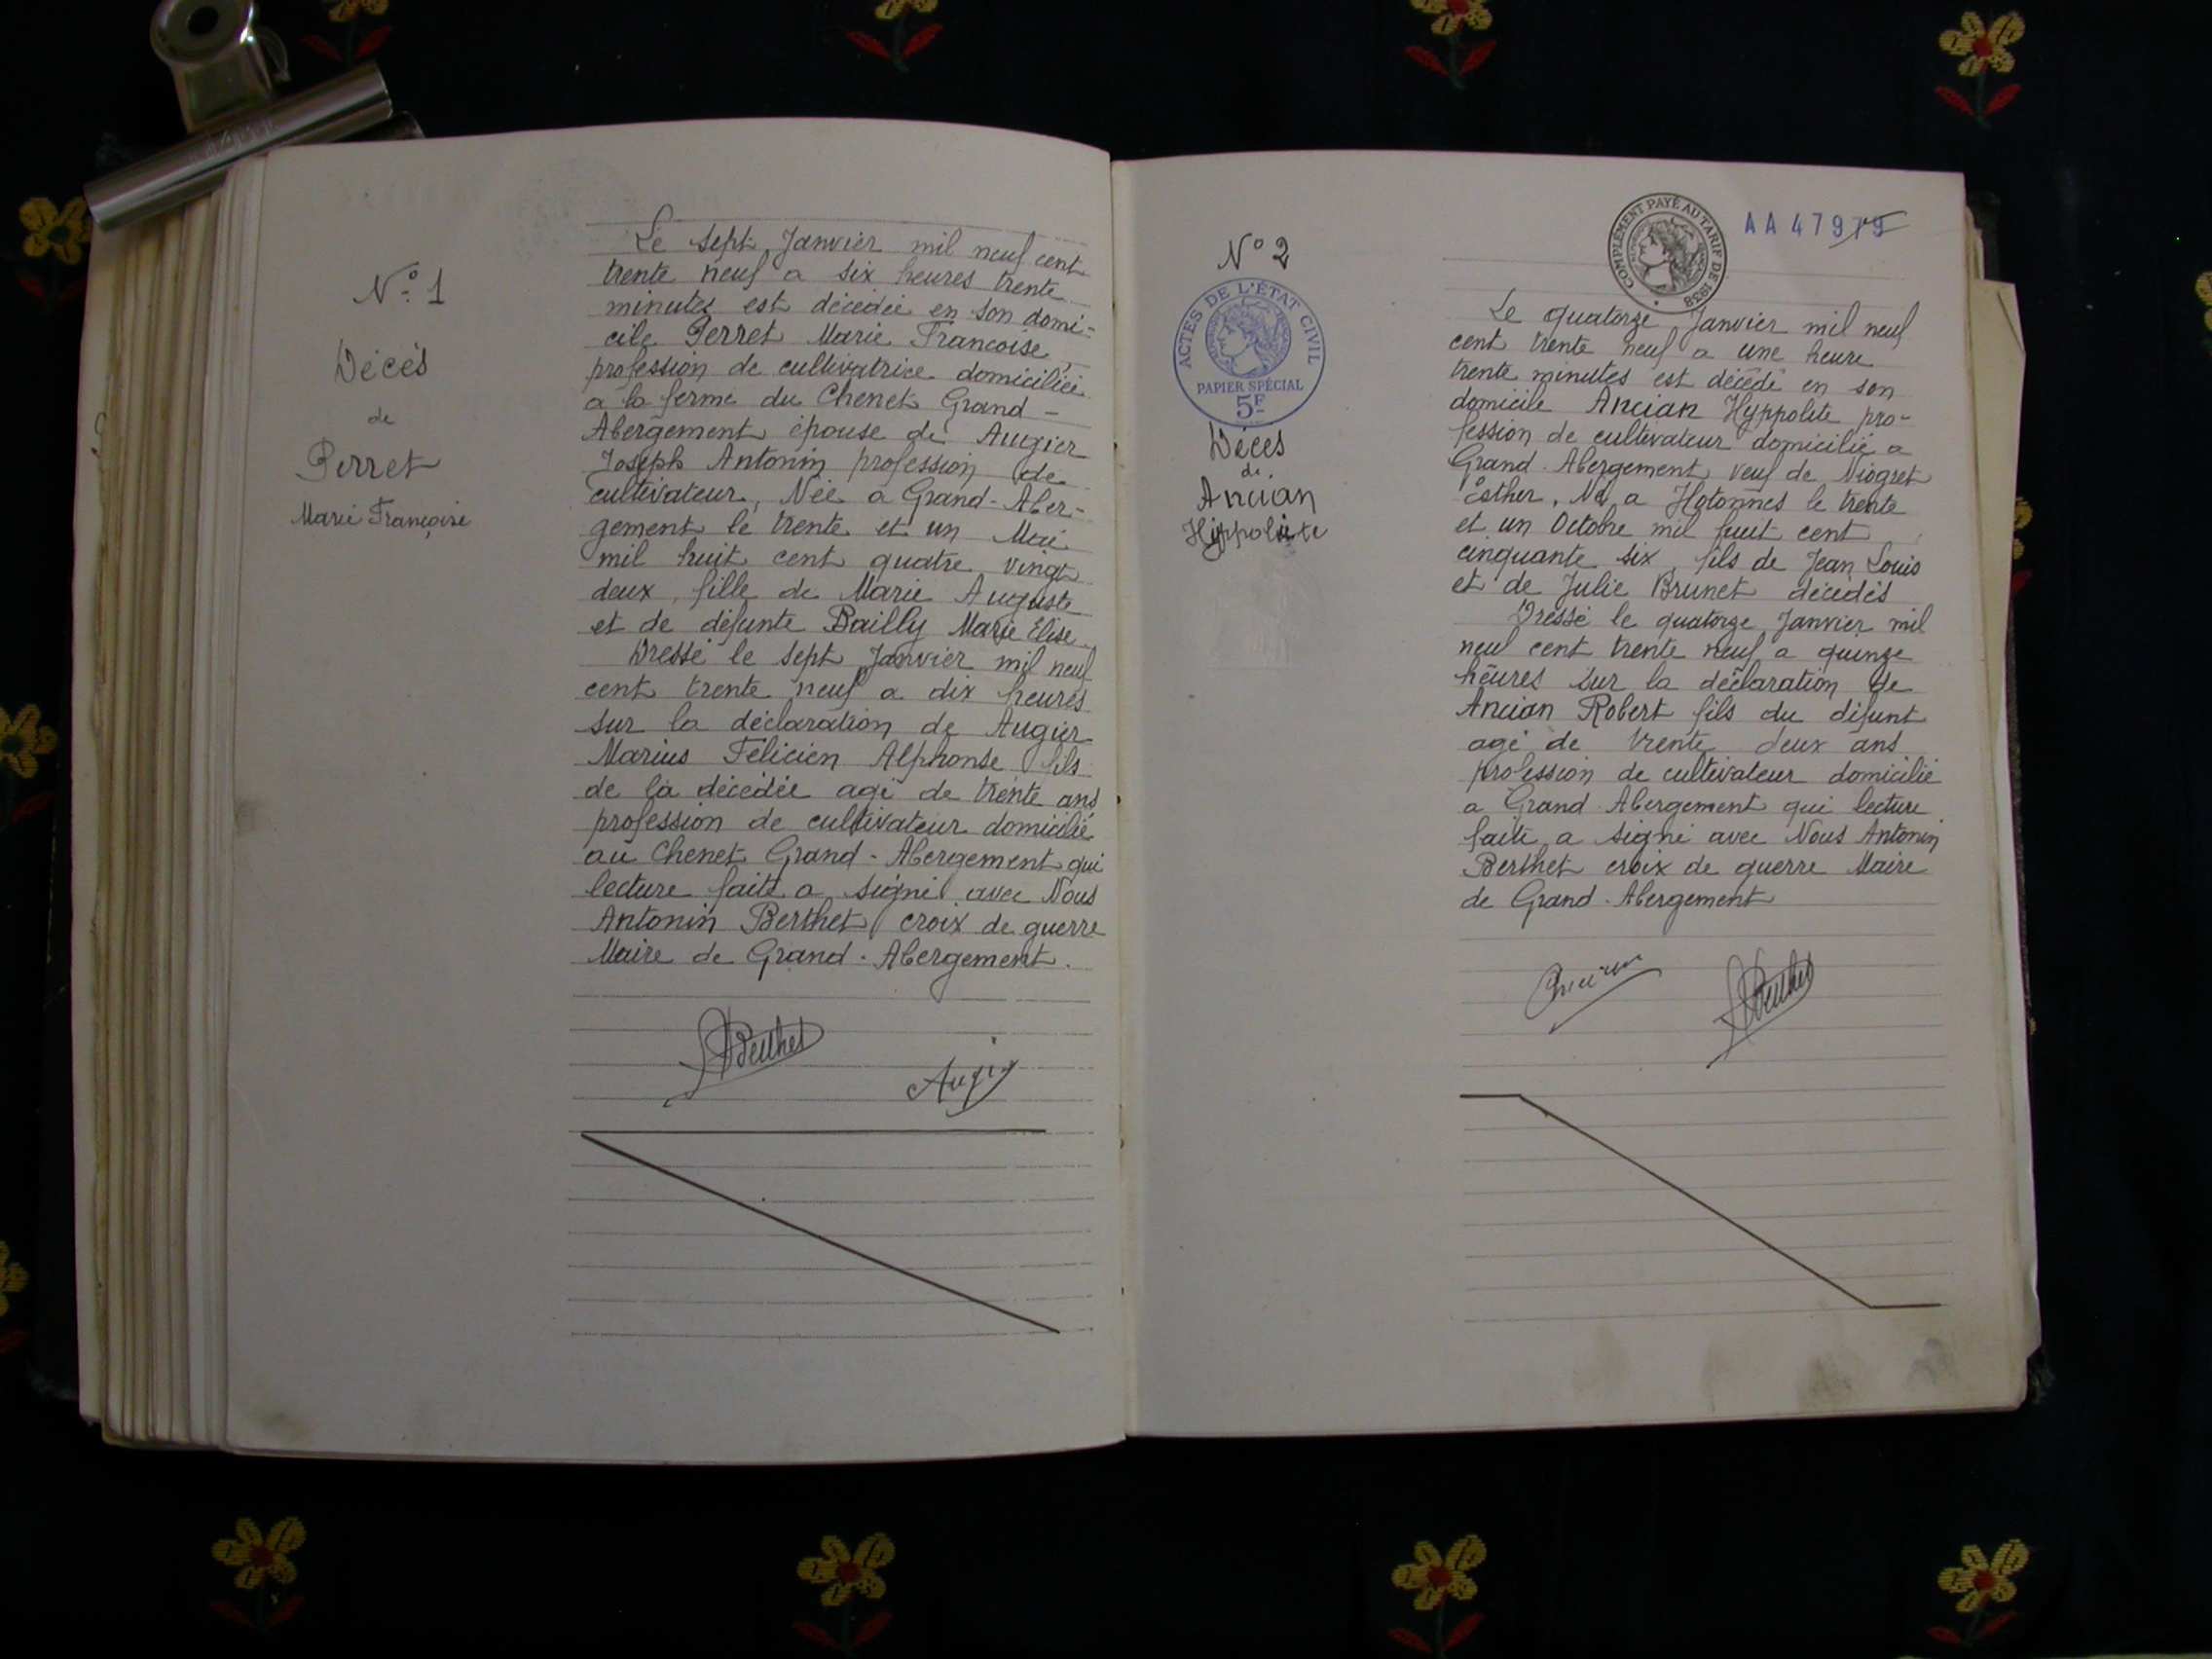 N° 1
Décès
de
Perret
Marie Françoise
Le sept Janvier mil neuf cent
trente neuf a six heures trente
minutes est décédée en son domi-
cile Perret Marie Francoise
profession de cultivatrice domiciliée
a la ferme du Chenet Grand -
Abergement épouse de Augier
Joseph Antonin profession de
cultivateur, Née a Grand-Aber-
gement le trente et un Mai
mil huit cent quatre vingt
deux, fille de Marie Auguste
et de défunte Bailly Marie Elise
Dressé le sept Janvier mil neuf
cent trente neuf a dix heures
sur la déclaration de Augier
Marius Félicien Alphonse fils
de la décédée agé de trente ans
profession de cultivateur domicilié
au Chenet Grand-Abergement qui
lecture faite a signé avec Nous
Antonin Berthet croix de guerre
Maire de Grand-Abergement.
ABerthet
Augier
N° 2
ACTES DE L'ÉTAT CIVIL
PAPIER SPÉCIAL
5F
Décès
de
Ancian
Hyppolite
COMPLÉMENT PAYÉ AU TARIF DE 1938
AA 47979
Le quatorze Janvier mil neuf
cent trente neuf a une heure
trente minutes est décédé en son
domicile Ancian Hyppolite pro-
fession de cultivateur domicilié a
Grand-Abergement veuf de Niogret
Esther, Né a Hotonnes le trente
et un Octobre mil huit cent
cinquante six, fils de Jean Louis
et de Julie Brunet décédés
Dressé le quatorze Janvier mil
neuf cent trente neuf a quinze
heures sur la déclaration de
Ancian Robert fils du défunt
agé de trente deux ans
profession de cultivateur domicilié
a Grand-Abergement qui lecture
faite a signé avec Nous Antonin
Berthet croix de guerre Maire
de Grand-Abergement
Ancian
ABerthet